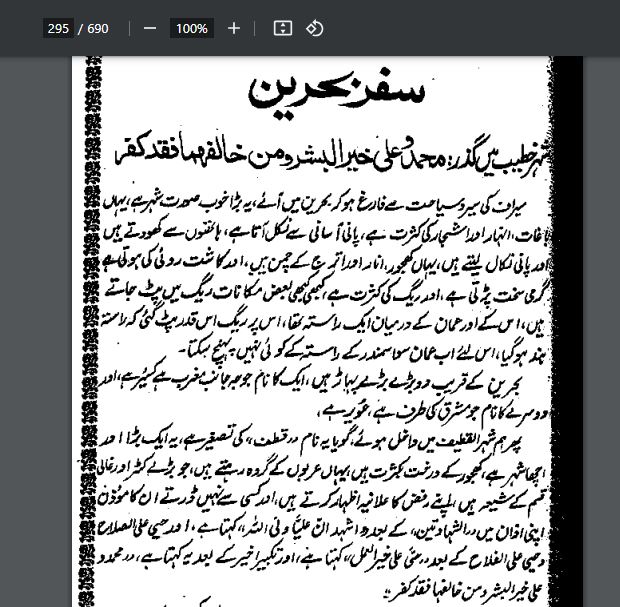 295 / 690
100%
سفر بحرین
شہر خطیب میں گذر: محمد و علی خیر البشر و من خالفهما فقد کفر
سیراف کی سیر و سیاحت سے فارغ ہو کر بحرین میں آئے، یہ بڑا خوب صورت شہر ہے، یہاں
باغات، انہار اور اشجار کی کثرت ہے، پانی آسانی سے نکل آتا ہے، ہاتھوں سے کھودتے ہیں
اور پانی نکال لیتے ہیں، یہاں کھجور، انار اور اترج کے چمن ہیں، اور کاشت روئی کی ہوتی ہے
گرمی سخت پڑتی ہے، اور ریگ کی کثرت ہے، کبھی کبھی بعض مکانات ریگ میں پٹ جاتے
ہیں، اس کے اور عمان کے درمیان ایک راستہ تھا، اس پر ریگ اس قدر پٹ گئی کہ راستہ
بند ہو گیا، اس لئے اب عمان سوا سمندر کے راستہ کے کوئی نہیں پہنچ سکتا۔
بحرین کے قریب دو بڑے بڑے پہاڑ ہیں، ایک کا نام جو بجانب مغرب ہے کسیر ہے، اور
دوسرے کا نام جو مشرق کی طرف ہے، عویر ہے،
پھر ہم شہر القطیف میں داخل ہوئے، گویا یہ نام ”قطف“ کی تصغیر ہے، یہ ایک بڑا اور
اچھا شہر ہے، کھجور کے درخت بکثرت ہیں، یہاں عربوں کے گروہ رہتے ہیں، جو بڑے کٹر اور غالی
قسم کے شیعہ ہیں، اپنے رفض کا علانیہ اظہار کرتے ہیں، اور کسی سے نہیں ڈرتے ان کا مؤذن
اپنی اذان میں ”الشہادتین“ کے بعد ”اشہد ان علیًا ولی اللہ“ کہتا ہے، اور حیی علی الصلاح
وحیی علی الفلاح کے بعد ”حی علی خیر العمل“ کہتا ہے، اور تکبیر اخیر کے بعد یہ کہتا ہے، ”محمد و
علی خیر البشر و من خالفها فقد کفر“: